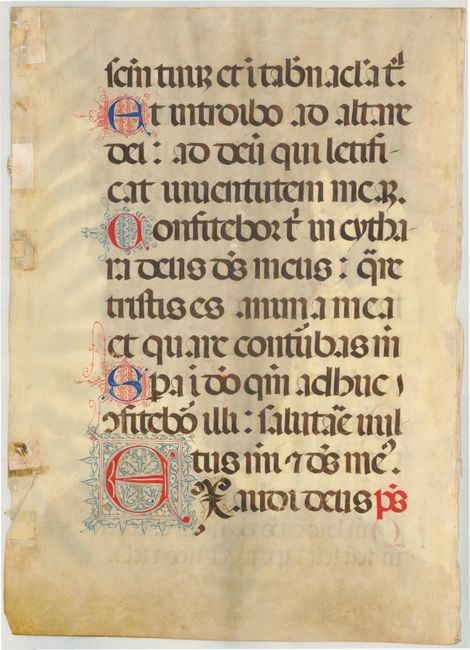 scm tuuꝝ et i tabnacla t.
Et introibo ad altare
dei : ad deū qui letifi-
cat iuuentutem meaꝝ.
Confitebor t in cytha
ra deus ds meus : qre
tristis es anima mea
et quare conturbas m
Spa i do qm adhuc
ↄfitebo illi : salutare uul
tus mi ⁊ ds me.
EXaudi deus ps